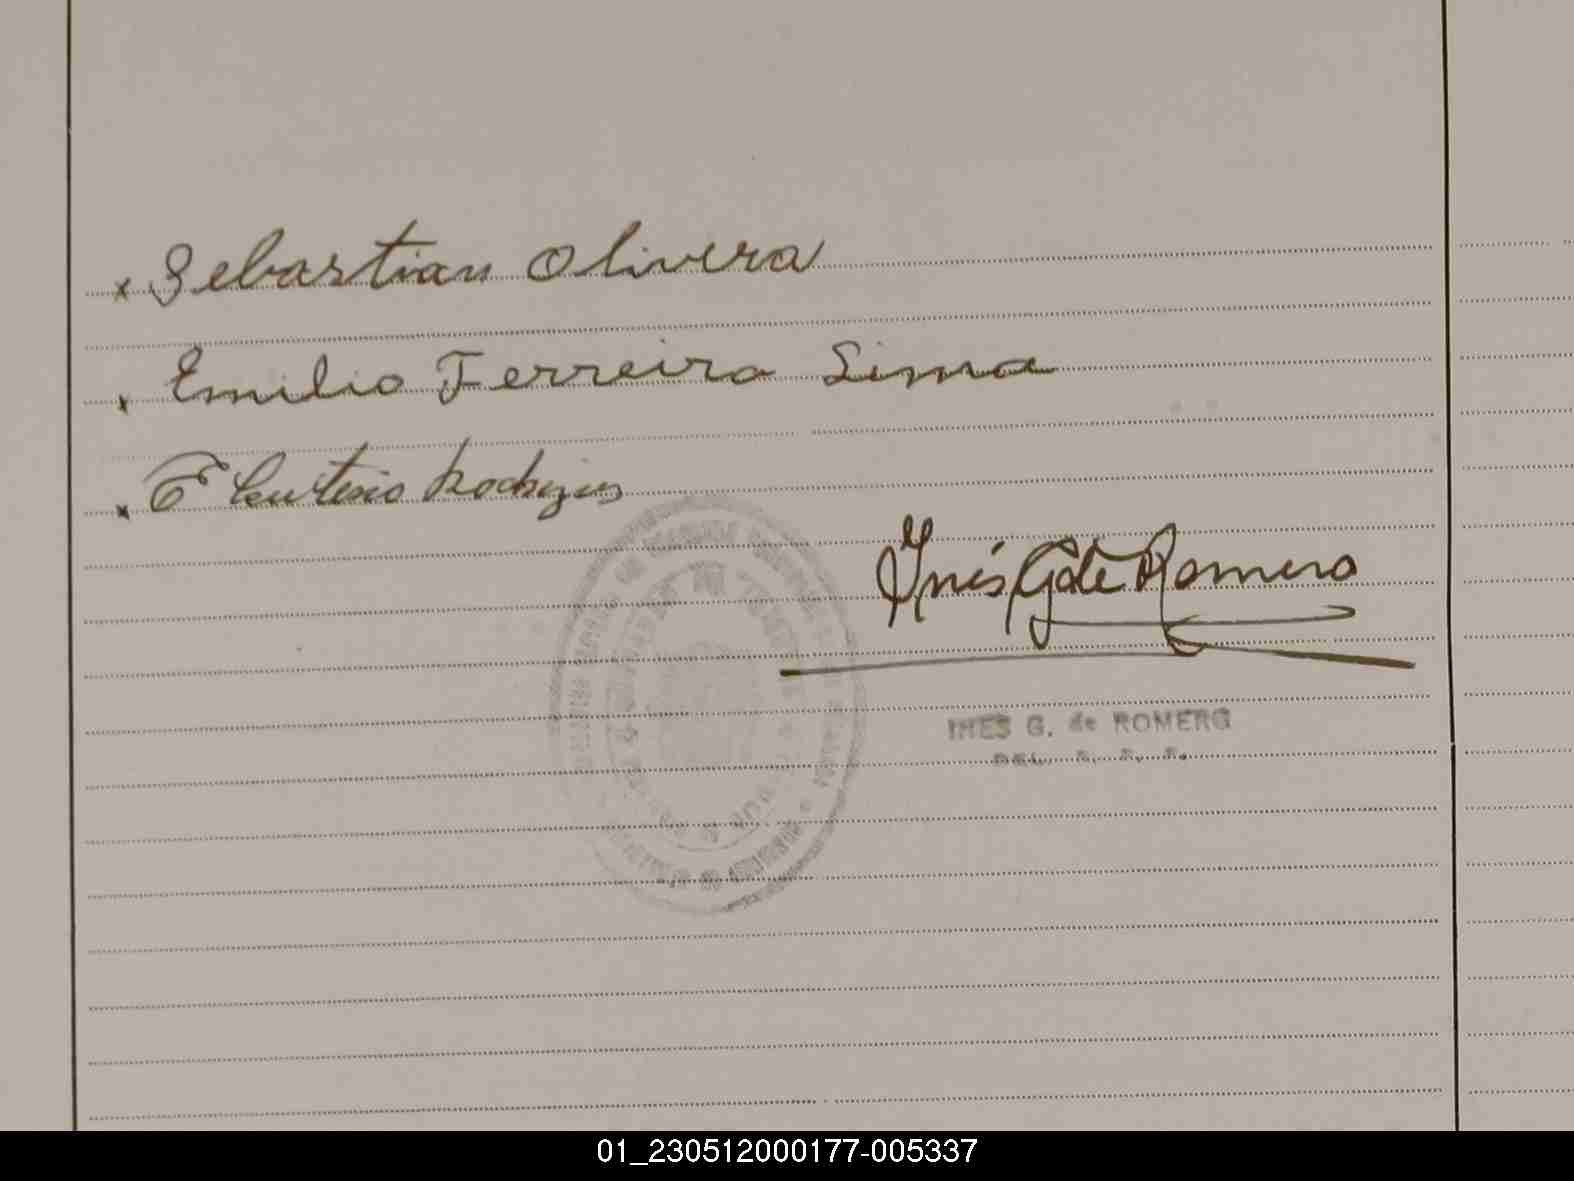 x Sebastian Olivera
x Emilio Ferreira Lima
x Eleuterio Rodriguez
Inés G de Romero
INES G. de ROMERO
DEL. R. P. P.
01_230512000177-005337